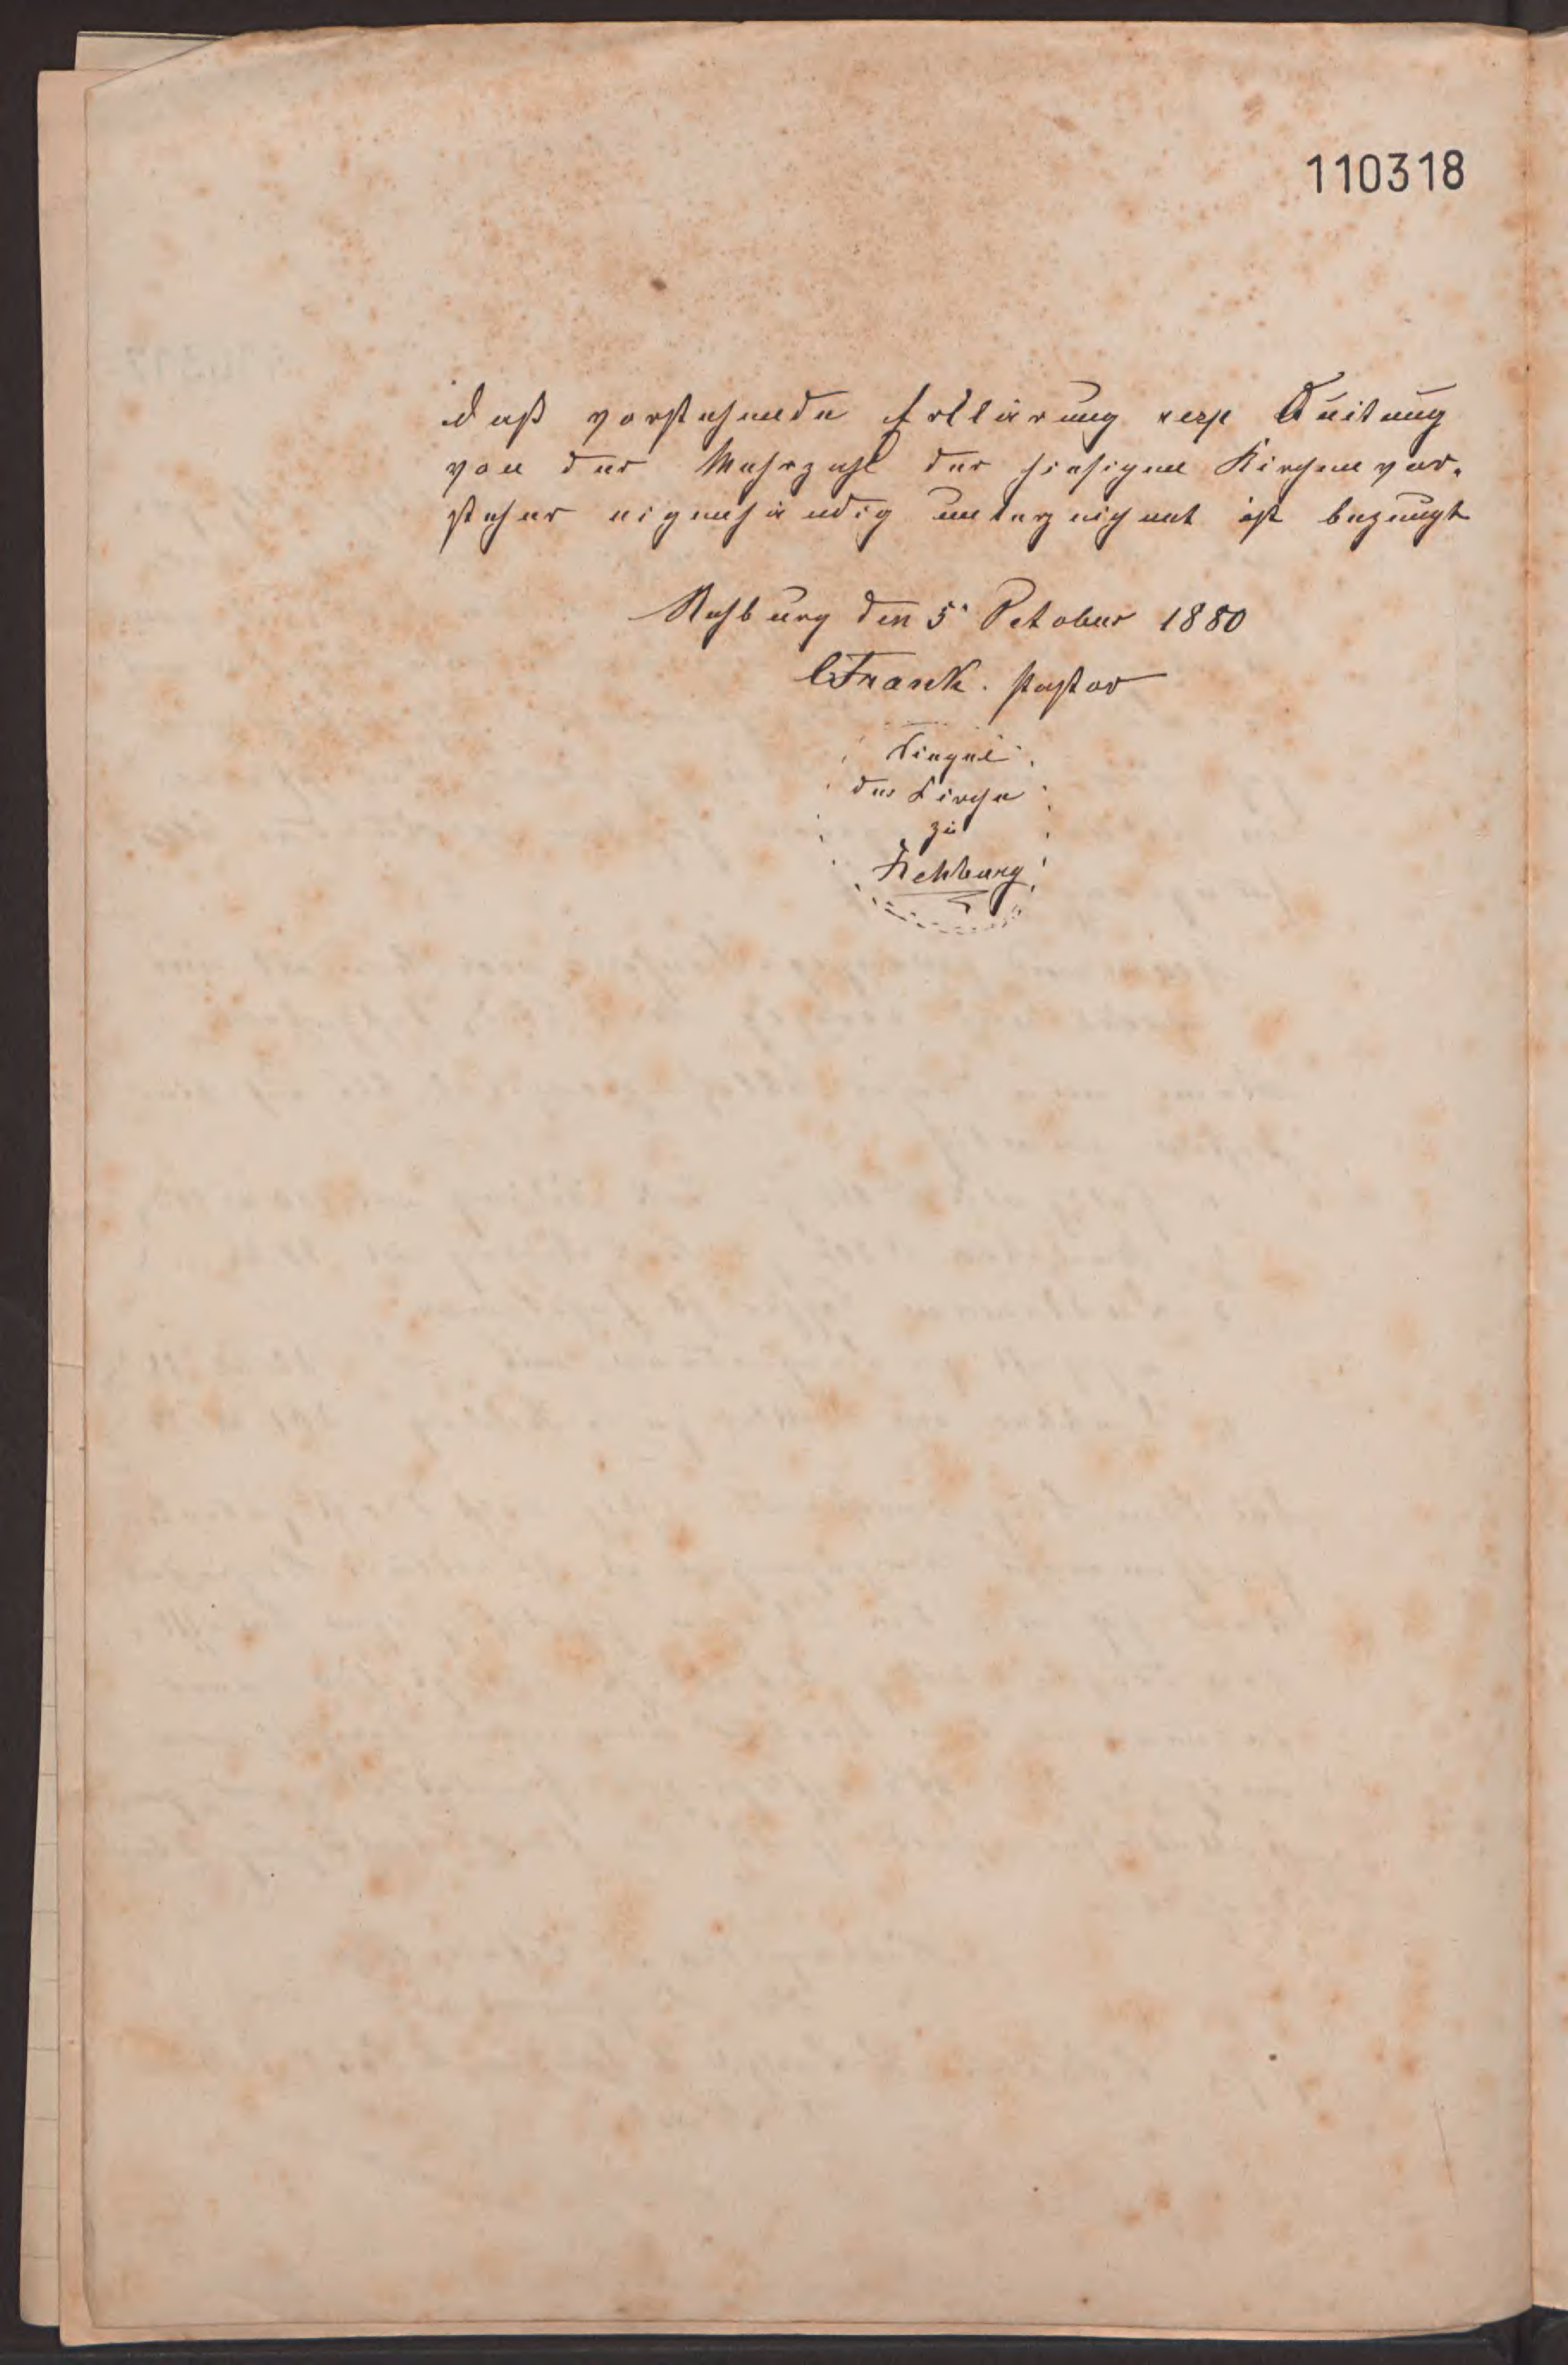 110318
Daß vorstehende Erklärung resp Quitung
von der Mehrzahl der hiesigen Kirchenvor-
steher eigenhändig unterzeichnet ist bezeugt
Rehburg den 5. October 1880
CFrank. Pastor
Siegel
der Kirche
zu
Rehburg